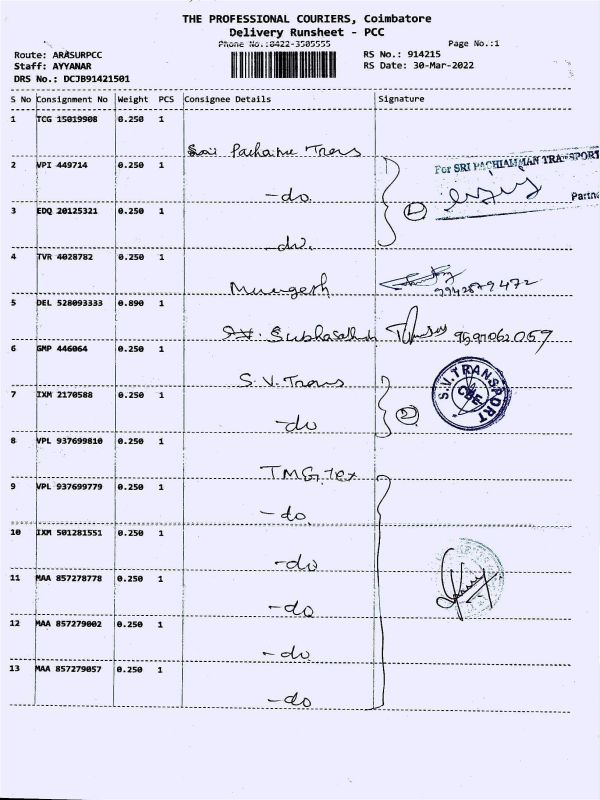 THE PROFESSIONAL COURIERS, Coimbatore
Delivery Runsheet - PCC
Phone No.:0422-3505555
Page No.:1
Route: ARASURPCC
Staff: AYYANAR
DRS No.: DCJB91421501
RS No.: 914215
RS Date: 30-Mar-2022
S No Consignment No Weight PCS Consignee Details Signature
1 TCG 15019908 0.250 1
Trans
For SRI PACHIAMMAN TRANSPORT
2 VPI 449714 0.250 1
-do.
Partne
3 EDQ 20125321 0.250 1
do.
4 TVR 4028782 0.250 1
Murugesh
9942879472
5 DEL 528093333 0.890 1
9597062059
6 GMP 446064 0.250 1
S.V. Trans
S.V.TRANSPORT
CBE
7 IXM 2170588 0.250 1
-do
2
8 VPL 937699810 0.250 1
TMG Tex
9 VPL 937699779 0.250 1
-do.
10 IXM 501281551 0.250 1
-do
11 MAA 857278778 0.250 1
-do
12 MAA 857279002 0.250 1
-do
13 MAA 857279057 0.250 1
-do